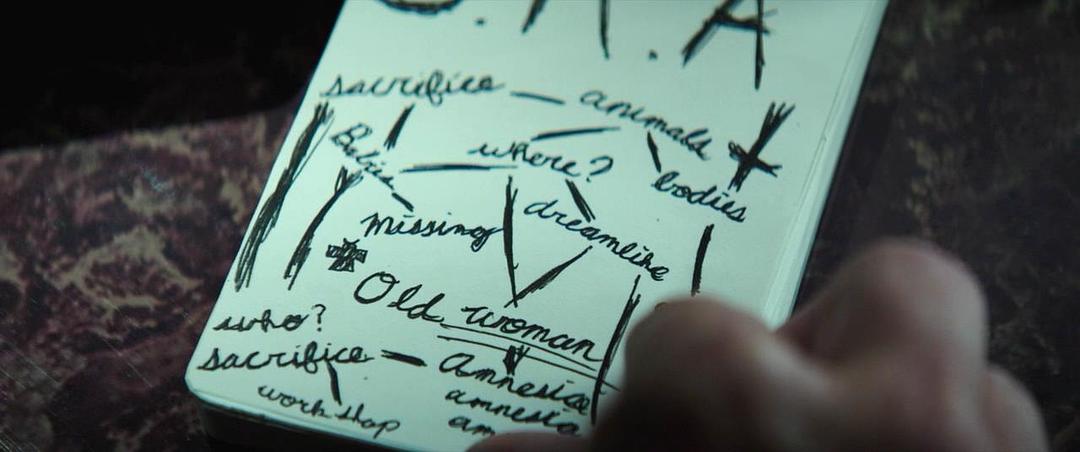 A
sacrifice — animals
where?
bodies
missing
dreamlike
Old woman
who?
sacrifice — Amnesia
amnesia
workshop
am